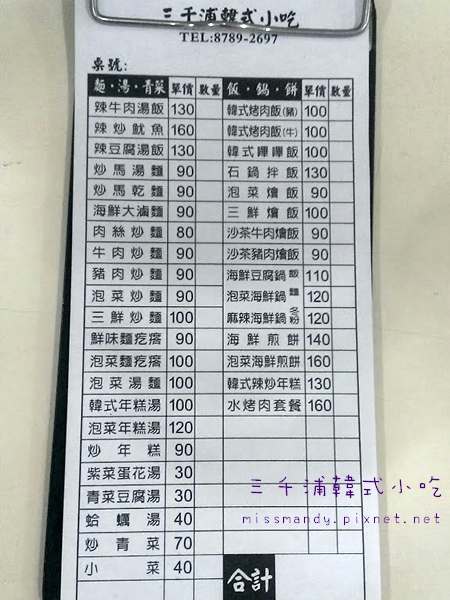 三千浦韓式小吃
TEL:8789-2697
桌號:
麵·湯·青菜 單價 數量 飯·鍋·餅 單價 數量
辣牛肉湯飯 130 韓式烤肉飯(豬) 100
辣炒魷魚 160 韓式烤肉飯(牛) 100
辣豆腐湯飯 130 韓式嗶嗶飯 100
炒馬湯麵 90 石鍋拌飯 130
炒馬乾麵 90 泡菜燴飯 90
海鮮大滷麵 90 三鮮燴飯 100
肉絲炒麵 80 沙茶牛肉燴飯 90
牛肉炒麵 90 沙茶豬肉燴飯 90
豬肉炒麵 90 海鮮豆腐鍋 飯 110
泡菜炒麵 90 泡菜海鮮鍋 麵 120
三鮮炒麵 100 麻辣海鮮鍋 冬粉 120
鮮味麵疙瘩 90 海鮮煎餅 140
泡菜麵疙瘩 100 泡菜海鮮煎餅 160
泡菜湯麵 100 韓式辣炒年糕 130
韓式年糕湯 100 水烤肉套餐 160
泡菜年糕湯 120
炒年糕 90
紫菜蛋花湯 30
青菜豆腐湯 30
蛤蠣湯 40
炒青菜 70
小菜 40
合計
三千浦韓式小吃
missmandy.pixnet.net